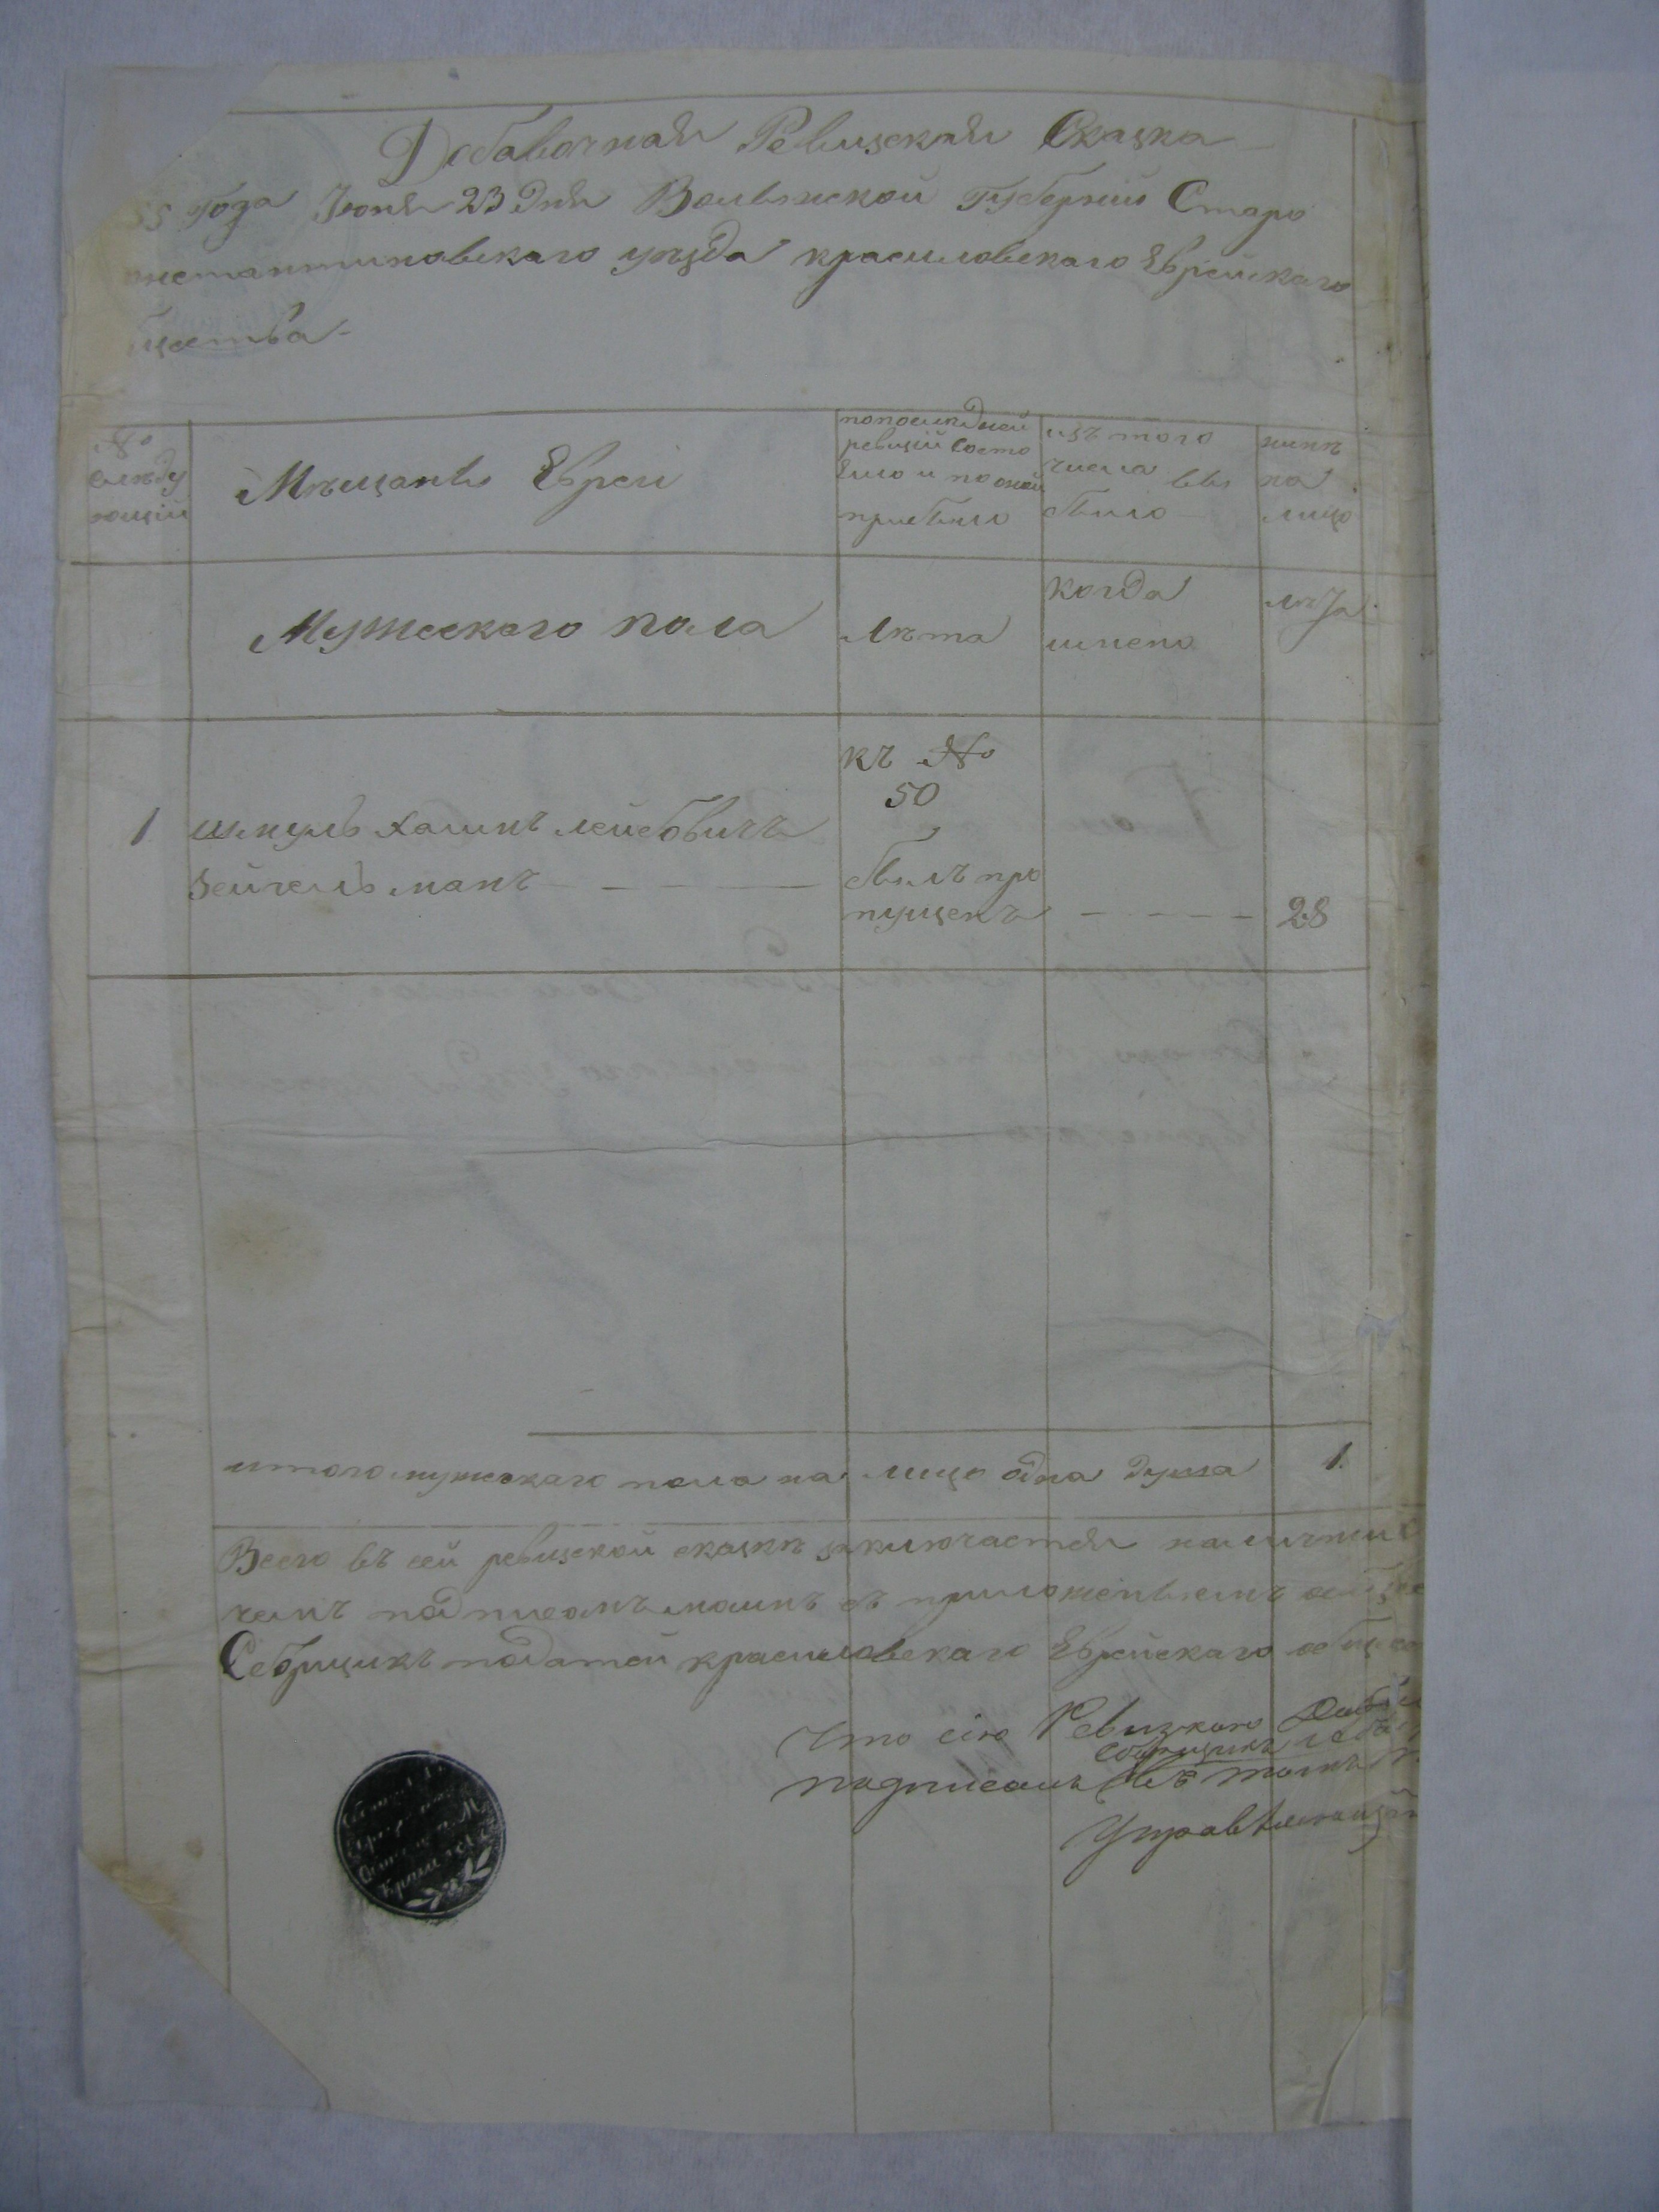 Добавочная Ревизская Сказка
55 Года Іюня 23 Дня Волынской Губерніи Старо
онстантиновскаго уѣзда красиловскаго Еврейскаго
бщества
№
слѣду
ющій
Мѣщанъ Евреи
по последней
ревизіи состо
яло и по оной
прибыло
изъ того
числа вы
было
нынѣ
на
лицо
Мужескаго пола
лѣта
когда
имено
лѣта
1
шмуль хаимъ лейбовичъ
зейгельманъ
къ №
50
былъ про
пущенъ
28
итого мужескаго пола на лицо одна душа 1.
Всего въ сей ревизской сказкѣ заключается наличных
чемъ подписомъ моимъ съ приложеніемъ
Сборщикъ податей красиловскаго Еврейскаго общес
Что сію Ревизкою
Сборщикъ
подписалъ въ томъ
Управляющій